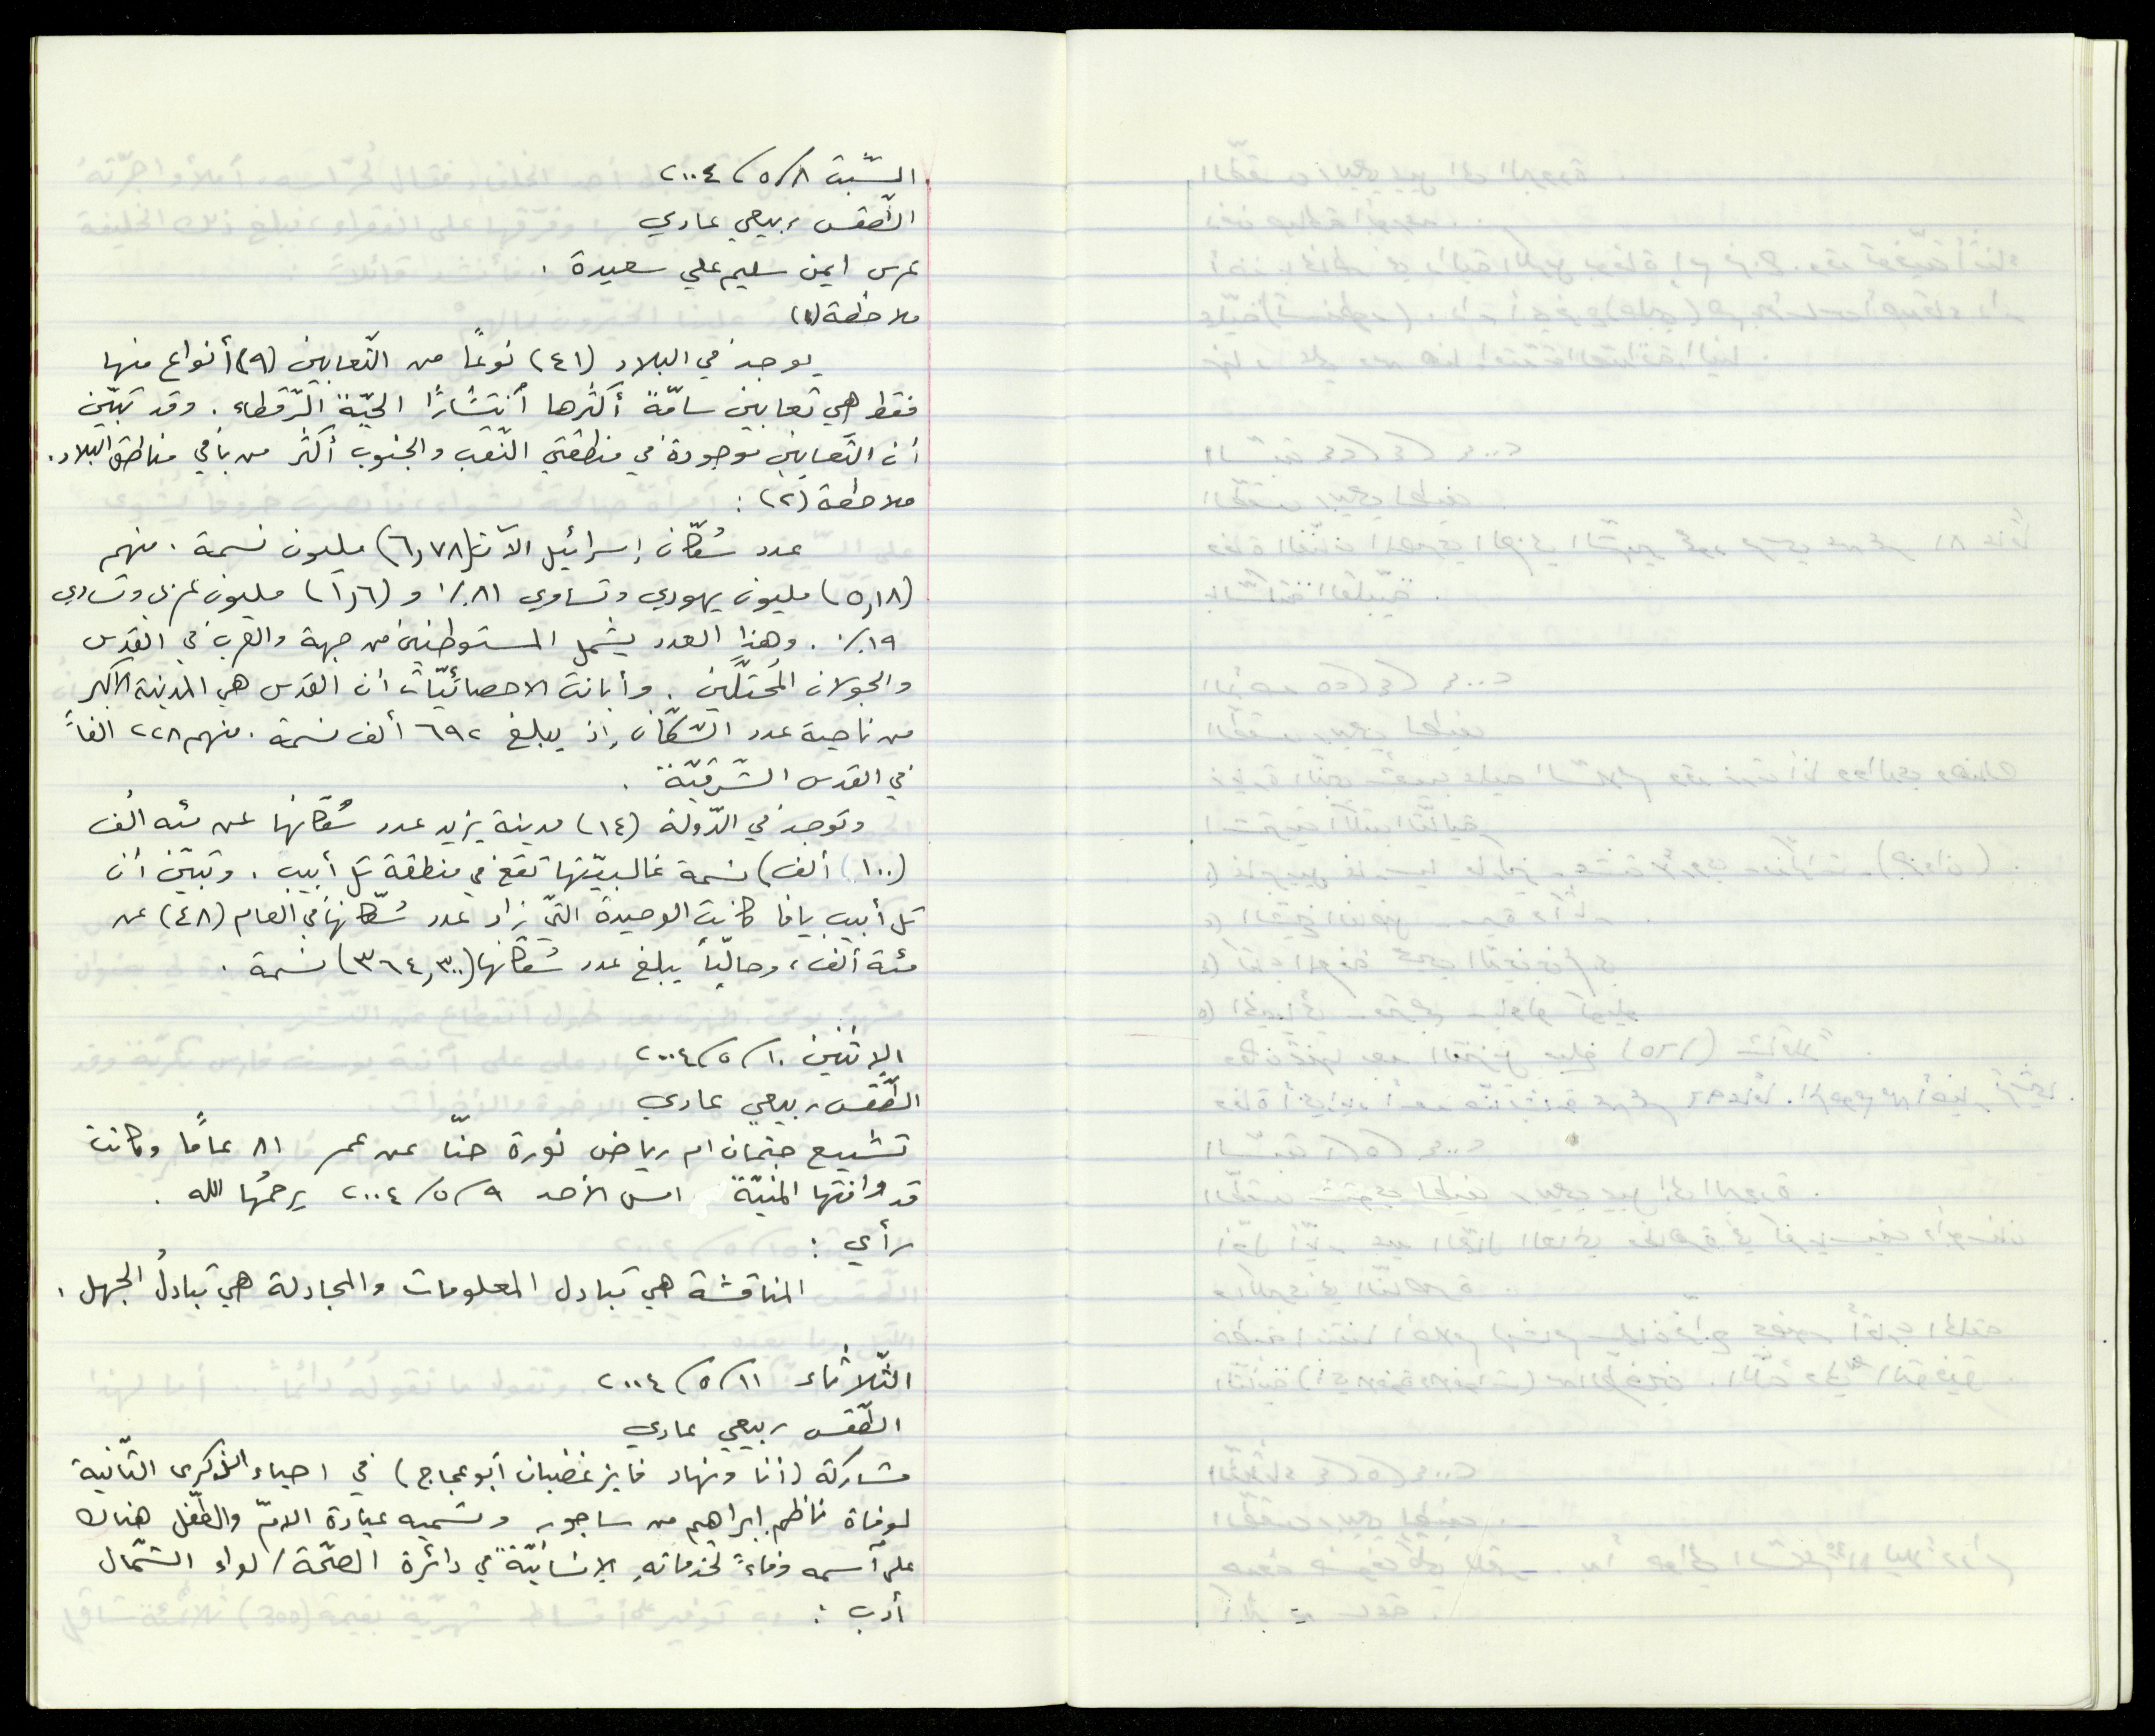 السّبت ٨/٥/٢٠٠٤
الطّقس ربيعي عادي
عرس ايمن سليم علي سعيدة .
ملاحظة (١)
يوجد في البلاد (٤١) نوعًا من الثّعابين (٩) أنواع منها
فقط هي ثعابين سامّة أكثرها اُنتشارًا الحيّة الرّقطاء . وقد تبيّن
أن الثّعابين موجودة في منطقتي النّقب والجنوب أكثر من باقي مناطق البلاد .
ملاحظة (٢) :
عدد سُكّان إسرائيل الآن (٦,٧٨) مليون نسمة . منهم
(٥,١٨) مليون يهودي وتساوي ٨١٪ و (١,٦) مليون عربي وتساوي
١٩٪ . وهذا العدد يشمل المستوطنين من جهة والعرب في القدس
والجولان المُحتلّين . وأبانت الاحصائيّات أن القدس هي المدينة الأكبر
من ناحية عدد السّكّان إذ يبلغ ٦٩٢ ألف نسمة . منهم ٢٢٨ الفاً
في القدس الشّرقيّة .
وتوجد في الدّولة (١٤) مدينة يزيد عدد سُكّانها عن مئه الف
(١٠٠ ألف) نسمة غالبيّتها تقع في منطقة تل أبيب . وتبيّن أن
تل أبيب يافا كانت الوحيدة التّي زاد عدد سُكّانها في العام (٤٨) عن
مئة ألف ، وحاليّاً يبلغ عدد سُكّانها (٣٦٤,٣٠٠) نسمة .
الإثنين ١٠/٥/٢٠٠٤
الطّقس ربيعي عادي
تشييع جثمان ام رياض نورة حنّا عن عمر ٨١ عامًا وكانت
قد وافتها المنيّة امس الأحد ٩/٥/٢٠٠٤ يرحمُها الله .
رأي :
المناقشة هي تبادل المعلومات والمجادلة هي تبادلُ الجهل .
الثّلاثاء ١١/٥/٢٠٠٤
الطّقس ربيعي عادي
مشاركة (أنا ونهاد فايز غضبان أبو عجاج) في احياء الذكرى الثّانية
لوفاة ناظم ابراهيم من ساجور وتسميه عيادة الامّ والطّفل هناك
على اُسمه وفاءً لخدماتهِ الإنسانيّة في دائرة الصّحّة / لواء الشّمال
أدب :